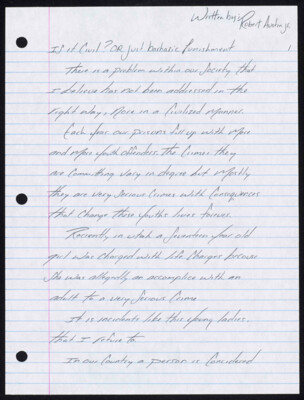 Written by:
Robert Austin Jr.
1
Is it Cruel? OR just barbaric Punishment
There is a problem within our Society that
I believe has not been addressed in the
right way, Once in a Civilized manner.
Each year our prisons fill up with more
and more youth offenders. The Crimes they
are Committing vary in degree but mostly
they are very serious Crimes with Consequences
that change those youths lives forever.
Recently in Utah a Seventeen year old
girl was charged with life Charges because
She was allegedly an accomplice with an
adult to a very serious Crime
It is incidents like this young ladies
that I refure to
In our Country a person is Considered